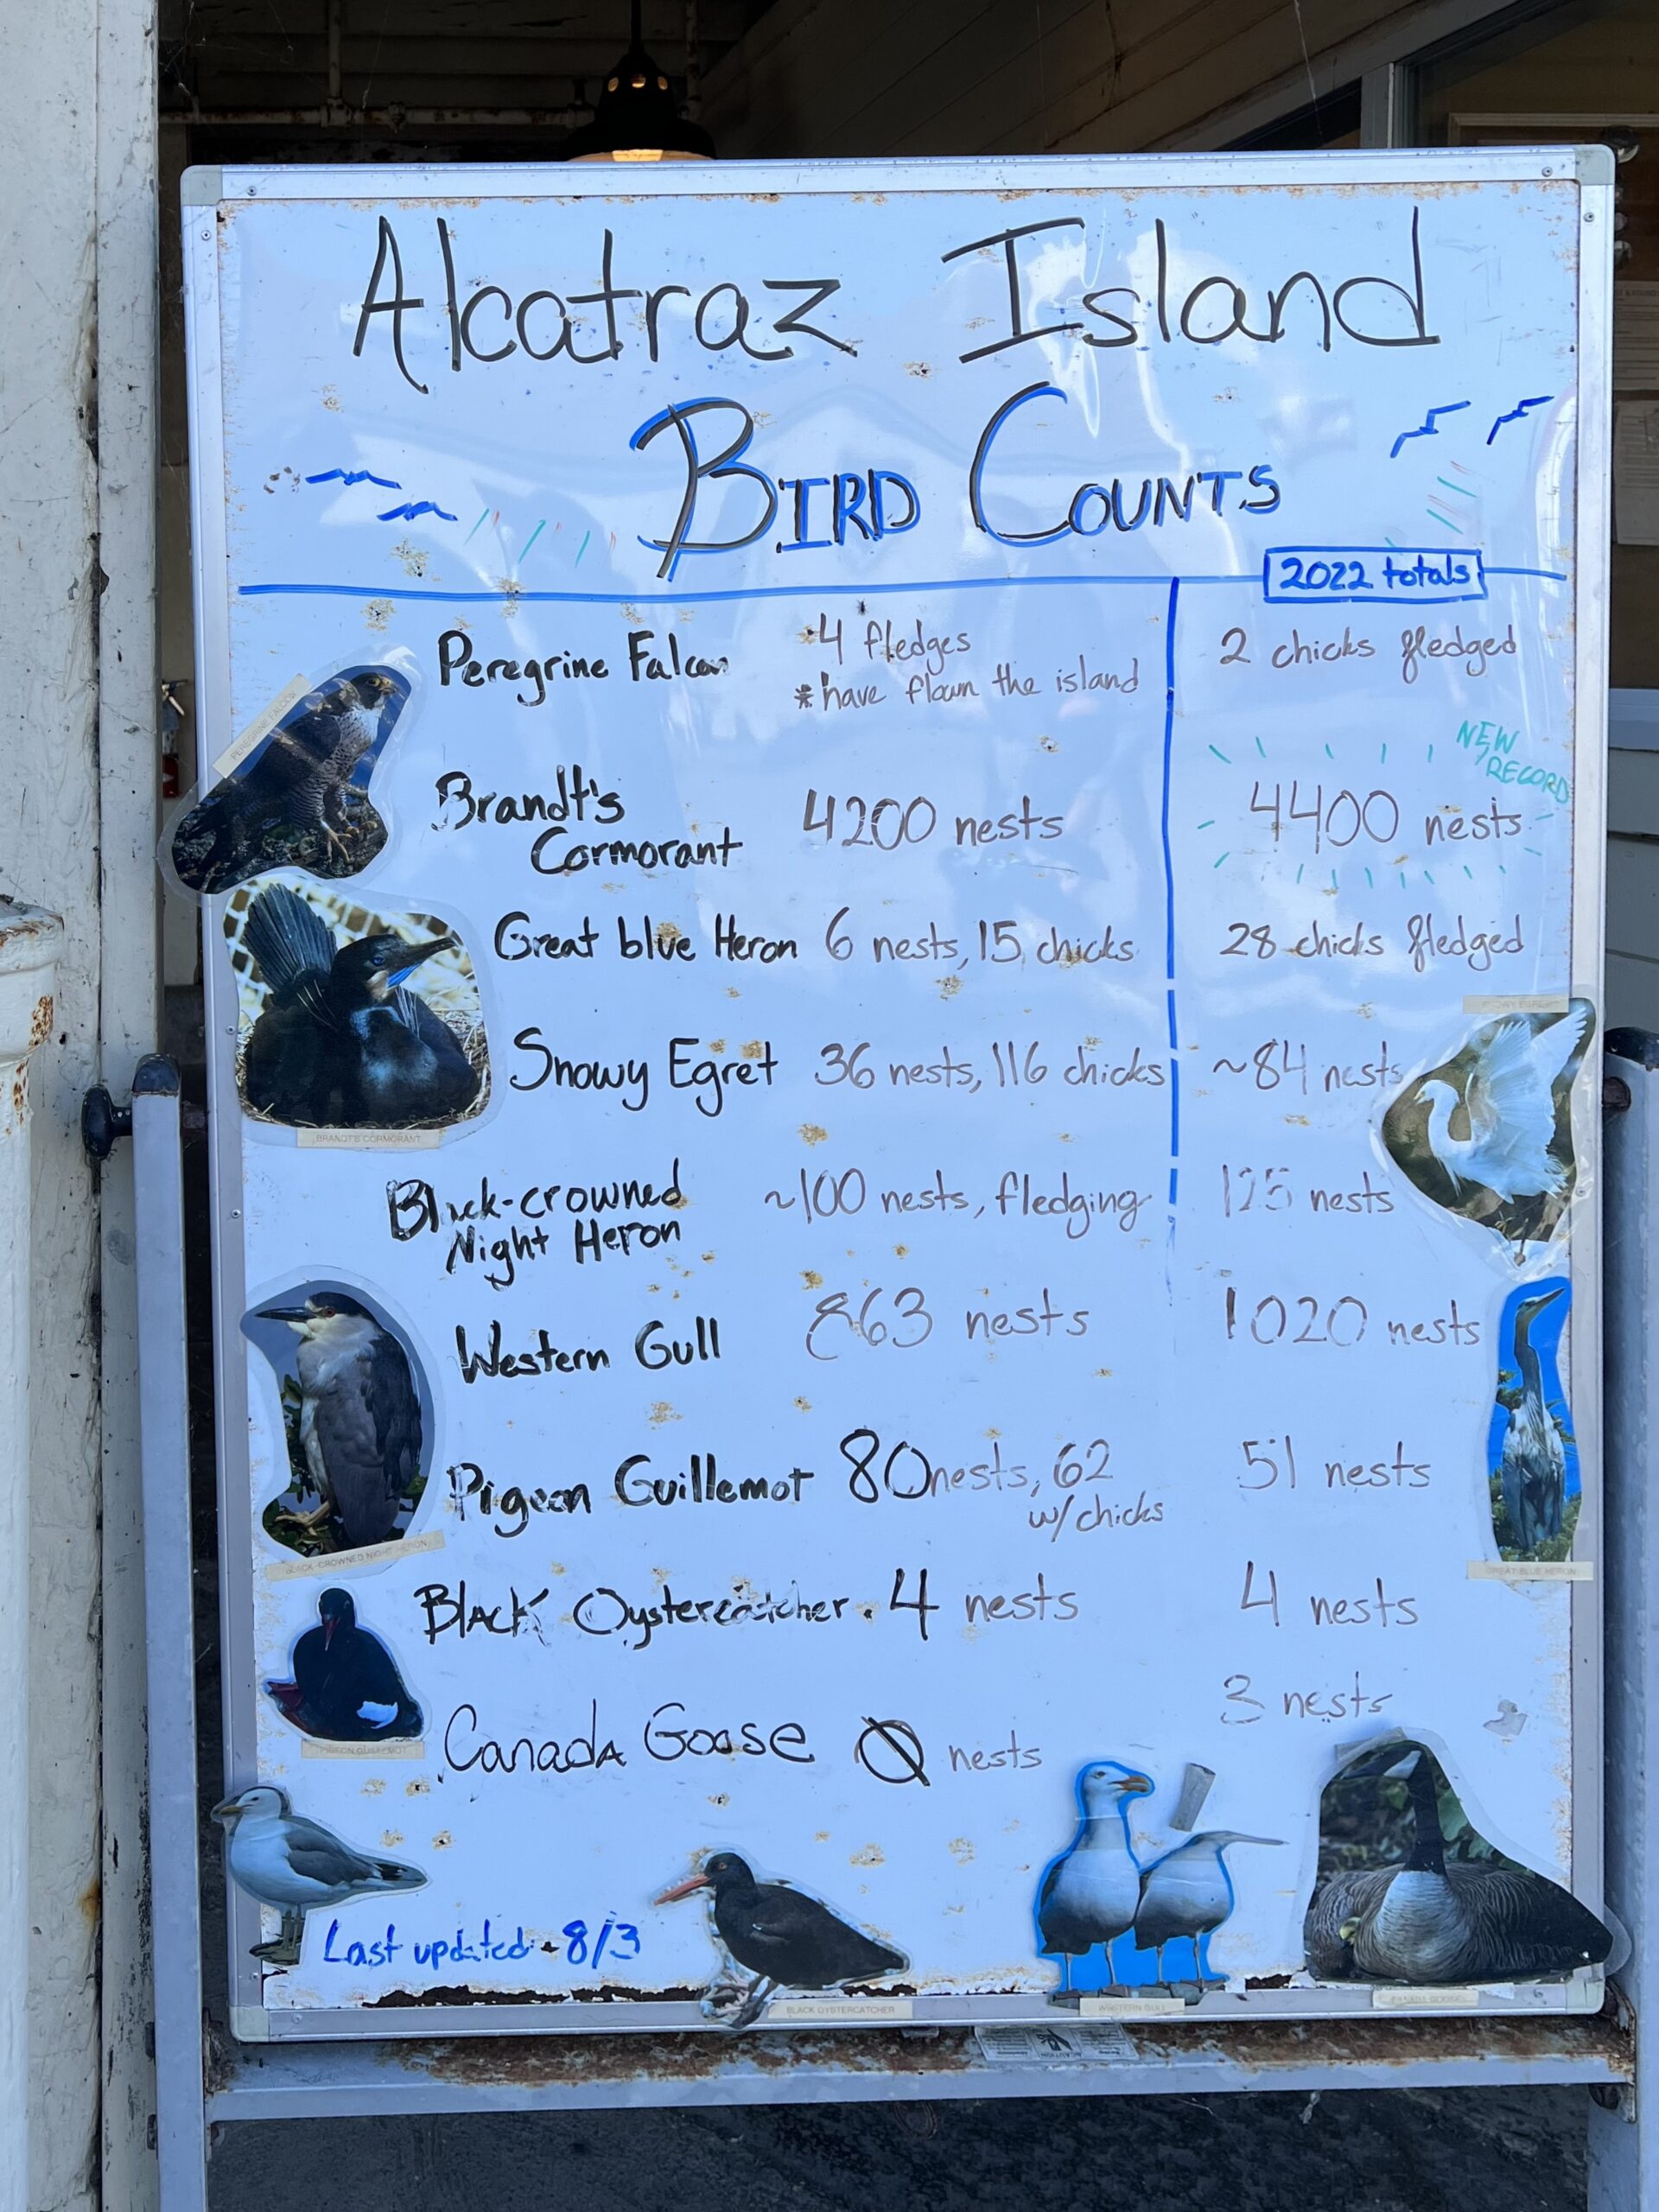 Alcatraz Island
BIRD COUNTS
2022 totals
Peregrine Falcon 4 fledges 2 chicks fledged
* have flown the island
PEREGRINE FALCON
NEW
RECORD
Brandt's
Cormorant 4200 nests 4400 nests
Great blue Heron 6 nests, 15 chicks 28 chicks fledged
SNOWY EGRET
Snowy Egret 36 nests, 116 chicks ~84 nests
BRANDT'S CORMORANT
Black-crowned ~100 nests, fledging 125 nests
Night Heron
Western Gull 863 nests 1020 nests
Pigeon Guillemot 80 nests, 62 51 nests
w/ chicks
BLACK-CROWNED NIGHT HERON
GREAT BLUE HERON
Black Oystercatcher 4 nests 4 nests
3 nests
Canada Goose 0 nests
PIGEON GUILLEMOT
Last updated - 8/3
BLACK OYSTERCATCHER
WESTERN GULL
CANADA GOOSE
CAUTION